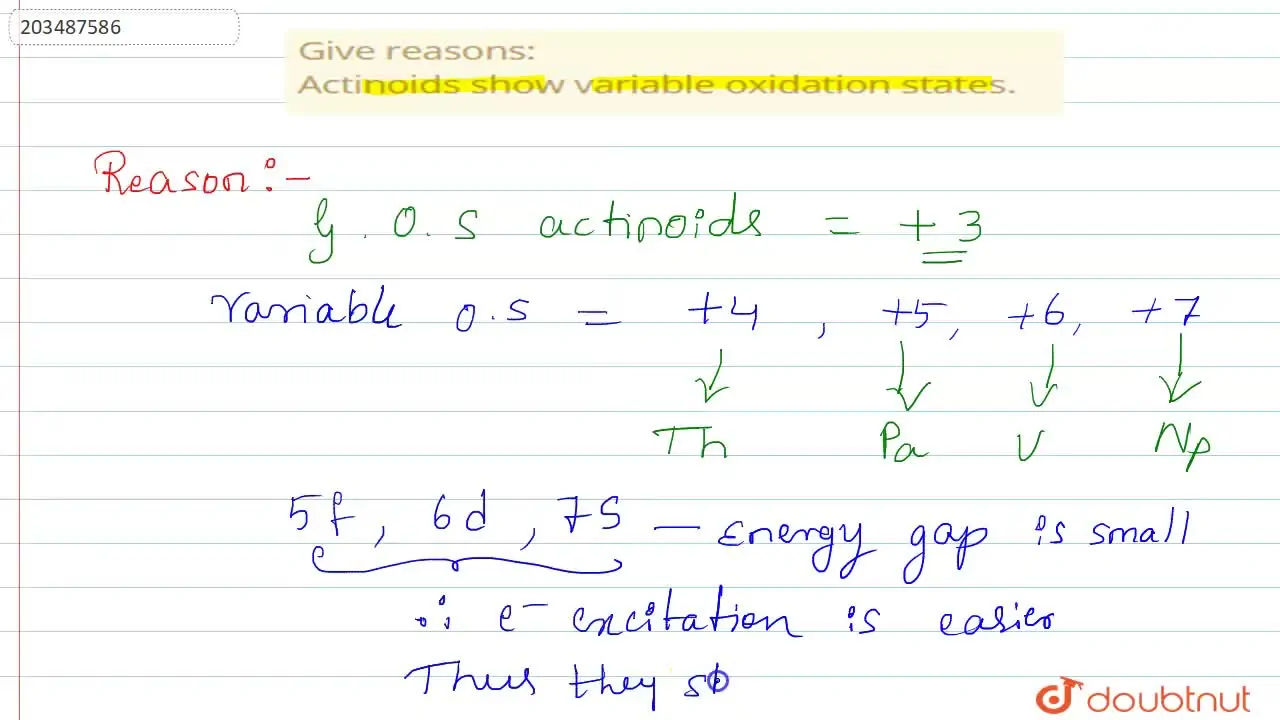 203487586
Give reasons:
Actinoids show variable oxidation states.
Reason:-
G. O. S actinoids = +3
Variable O.S = +4, +5, +6, +7
Th Pa U Np
5f, 6d, 7S — Energy gap is small
∴ e⁻ excitation is easier
Thus they sh
doubtnut